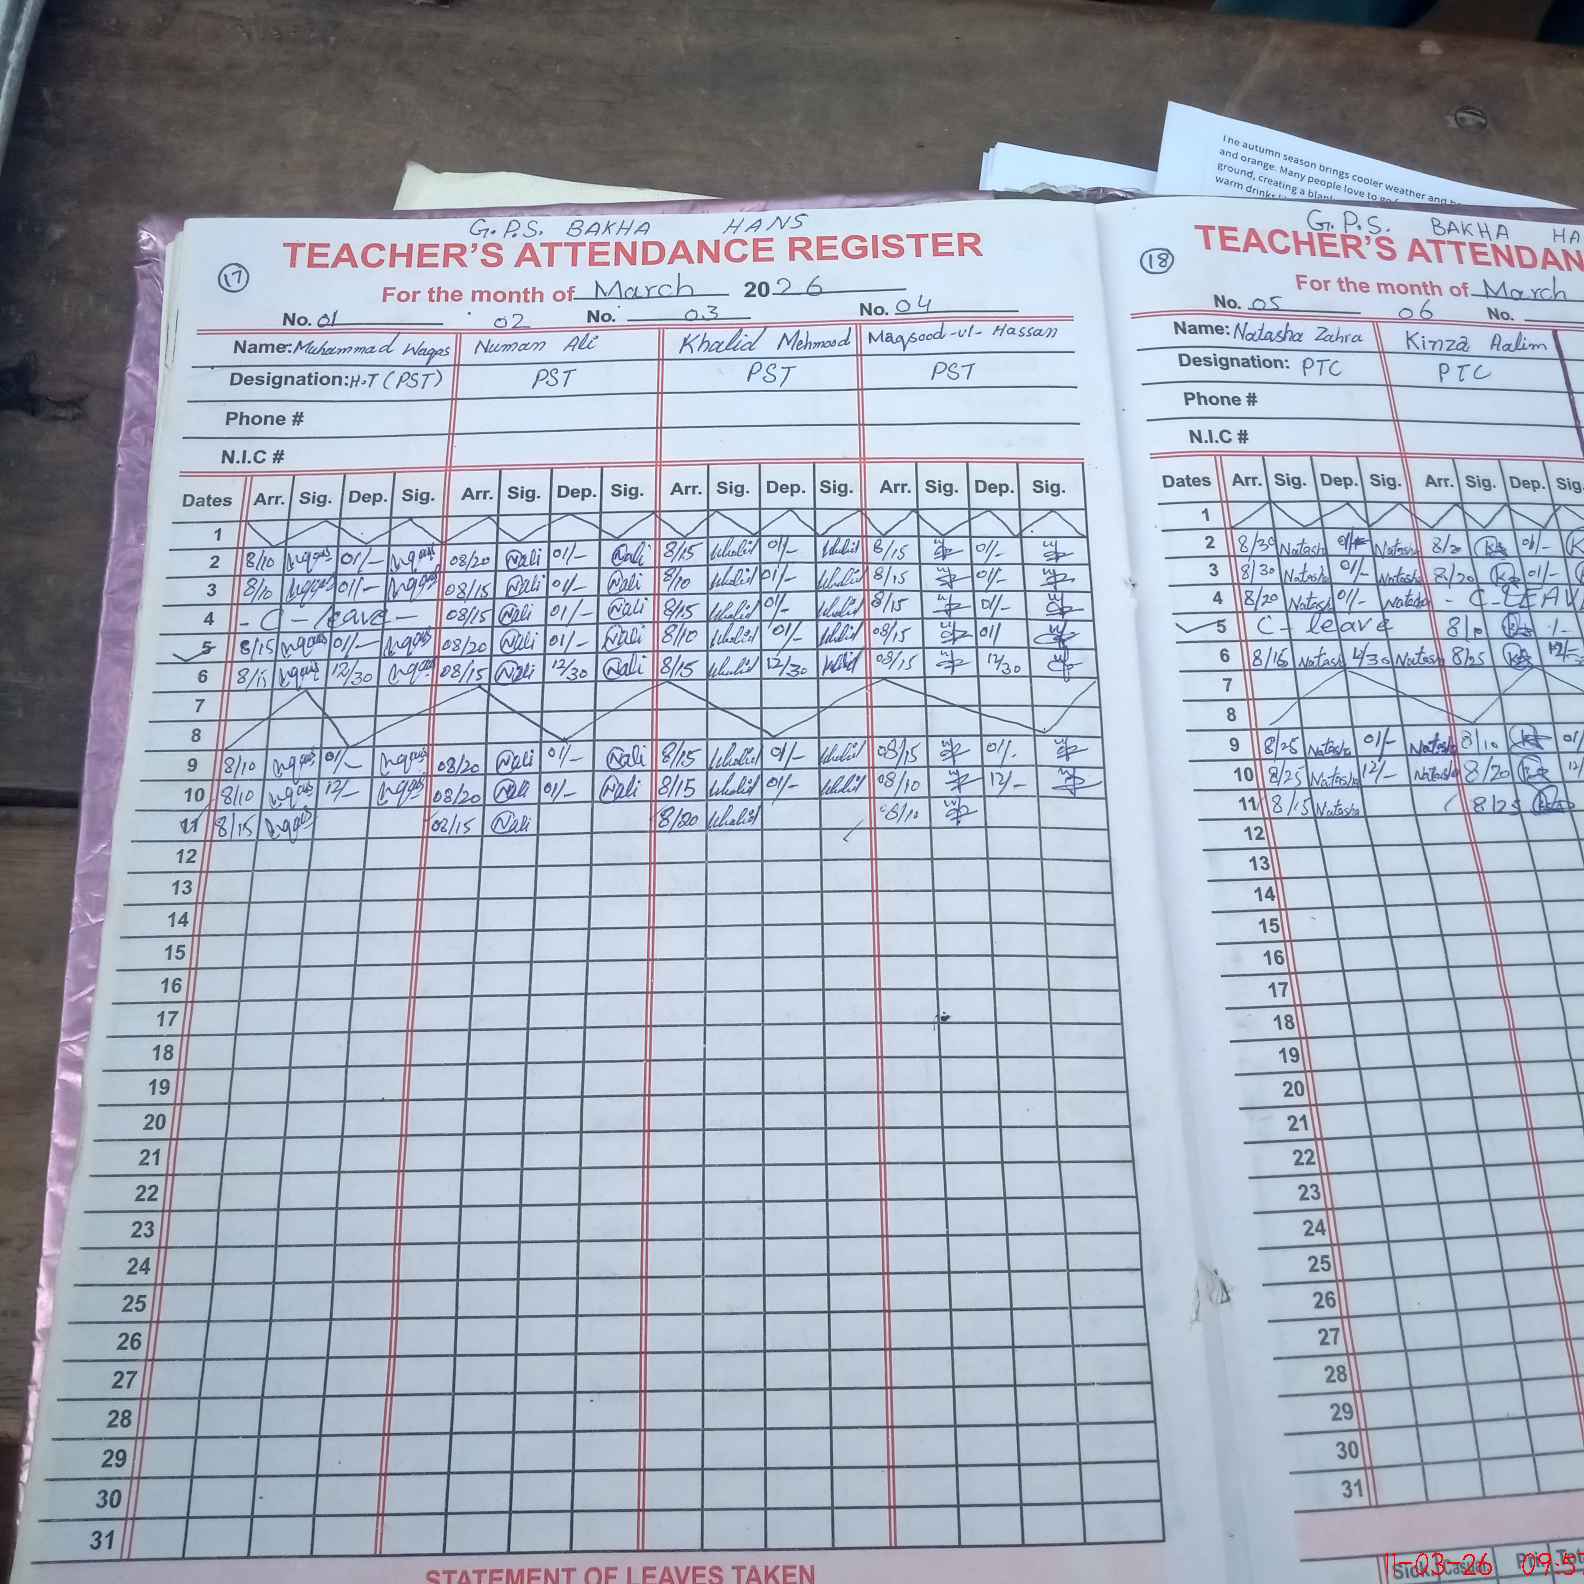 The autumn season brings cooler weather and
and orange. Many people love to
ground, creating a
warm drinks
G.P.S. BAKHA HANS
TEACHER'S ATTENDANCE REGISTER
17
For the month of March 2026
No. 01 02 No. 03 No. 04
Name: Muhammad Waqas Numan Ali Khalid Mehmood Maqsood-ul-Hassan
Designation: H.T (PST) PST PST PST
Phone #
N.I.C #
Dates Arr. Sig. Dep. Sig. Arr. Sig. Dep. Sig. Arr. Sig. Dep. Sig. Arr. Sig. Dep. Sig.
1
2 8/10 01/- 08/20 Nali 01/- Nali 8/15 Khalid 01/- Khalid 8/15 01/-
3 8/10 01/- 08/15 Nali 01/- Nali 8/10 Khalid 01/- Khalid 8/15 01/-
4 - C - leave - 08/15 Nali 01/- Nali 8/15 Khalid 01/- Khalid 8/15 01/-
5 8/15 01/- 08/20 Nali 01/- Nali 8/10 Khalid 01/- Khalid 08/15 01/
6 12/30 08/15 Nali 12/30 Nali 8/15 Khalid 12/30 Khalid 08/15 12/30
7
8
9 8/10 01/- 08/20 Nali 01/- Nali 8/15 Khalid 01/- Khalid 08/15 01/-
10 8/10 12/- 08/20 Nali 01/- Nali 8/15 Khalid 01/- Khalid 08/10 12/-
11 8/15 08/15 Nali 8/20 Khalid 08/10
12
13
14
15
16
17
18
19
20
21
22
23
24
25
26
27
28
29
30
31
STATEMENT OF LEAVES TAKEN
G.P.S. BAKHA
TEACHER'S
18
For the month of March
No. 05 06 No.
Name: Natasha Zahra Kinza Aalim
Designation: PTC PTC
Phone #
N.I.C #
Dates Arr. Sig. Dep. Sig. Arr. Sig. Dep. Sig.
1
2 8/30 Natasha Natasha 8/20 01/-
3 8/30 Natasha 01/- Natasha 8/20 01/-
4 8/20 Natasha 01/- Natasha - C - LEAV
5 C - leave 8/10
6 Natasha Natasha 8/25
7
8
9 8/25 Natasha 01/- Natasha 8/10
10 8/25 Natasha 12/- Natasha 8/20
11 8/15 Natasha 8/25
12
13
14
15
16
17
18
19
20
21
22
23
24
25
26
27
28
29
30
31
Sick
11-03-26